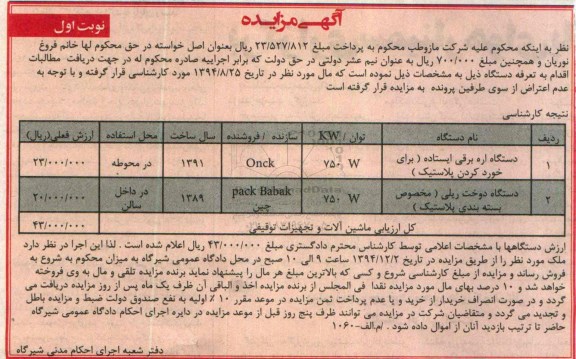 آگهی مزایده
نوبت اول
نظر به اینکه محکوم علیه شرکت مازوطب محکوم به پرداخت مبلغ ۲۳/۵۲۷/۸۱۲ ریال بعنوان اصل خواسته در حق محکوم لها خانم فروغ
نوریان و همچنین مبلغ ۷۰۰/۰۰۰ ریال به عنوان نیم عشر دولتی در حق دولت که برابر اجراییه صادره محکوم له در جهت دریافت مطالبات
اقدام به تعرفه دستگاه ذیل به مشخصات ذیل نموده است که مال مورد نظر در تاریخ ۱۳۹۴/۸/۲۵ مورد کارشناسی قرار گرفته و با توجه به
عدم اعتراض از سوی طرفین پرونده به مزایده قرار گرفته است
نتیجه کارشناسی
ردیف نام دستگاه توان / KW سازنده / فروشنده سال ساخت محل استفاده ارزش فعلی(ریال)
۱ دستگاه اره برقی ایستاده ( برای خورد کردن پلاستیک ) ۷۵۰ W Onck ۱۳۹۱ در محوطه ۲۳/۰۰۰/۰۰۰
۲ دستگاه دوخت ریلی ( مخصوص بسته بندی پلاستیک ) ۷۵۰ W pack Babak چین ۱۳۸۹ در داخل سالن ۲۰/۰۰۰/۰۰۰
کل ارزیابی ماشین آلات و تجهیزات توقیفی ۴۳/۰۰۰/۰۰۰
ارزش دستگاهها با مشخصات اعلامی توسط کارشناس محترم دادگستری مبلغ ۴۳/۰۰۰/۰۰۰ ریال اعلام شده است . لذا این اجرا در نظر دارد
ملک مورد نظر را از طریق مزایده در تاریخ ۱۳۹۴/۱۲/۲ ساعت ۹ الی ۱۰ صبح در محل دادگاه عمومی شیرگاه به میزان محکوم به شروع به
فروش رساند و مزایده از مبلغ کارشناسی شروع و کسی که بالاترین مبلغ هر مال را پیشنهاد نماید برنده مزایده تلقی و مال به وی فروخته
خواهد شد و ۱۰ درصد بهای مال مورد مزایده نقدا فی المجلس از برنده مزایده اخذ و الباقی آن ظرف یک ماه پس از روز مزایده دریافت می
گردد و در صورت انصراف خریدار از خرید و یا عدم پرداخت ثمن مزایده در موعد مقرر ۱۰ ٪ اولیه به نفع صندوق دولت ضبط و مزایده باطل
و تجدید می گردد و متقاضیان شرکت در مزایده می توانند ظرف پنج روز قبل از موعد مزایده در دایره اجرای احکام دادگاه عمومی شیرگاه
حاضر تا ترتیب بازدید آنان از اموال داده شود . /م.الف-۱۰۶۰
دفتر شعبه اجرای احکام مدنی شیرگاه